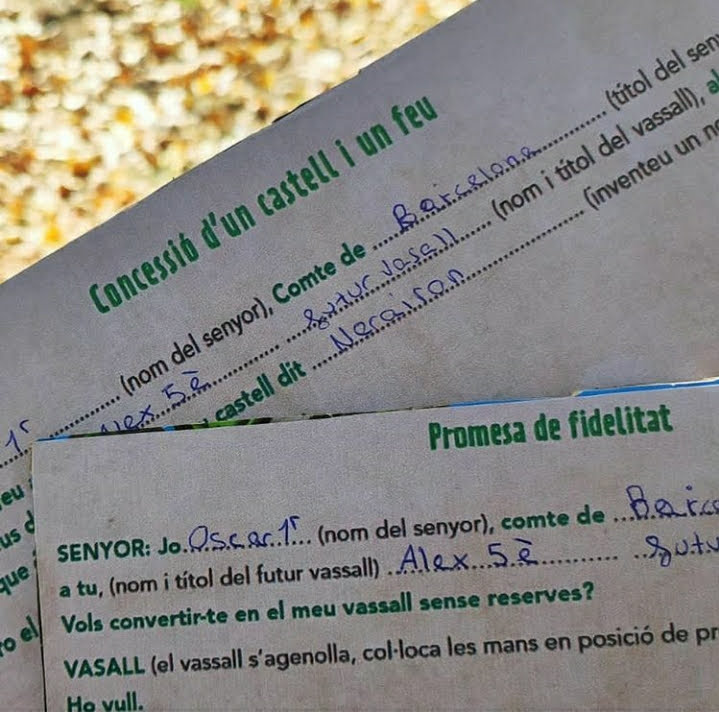 Concessió d'un castell i un feu
1r ............ (nom del senyor), Comte de ... Barcelona ............ (títol del sen
Alex 5è ............ futur vasall ...... (nom i títol del vassall), al
castell dit ............ (inventeu un no
eu
us d
que
ro el
Promesa de fidelitat
SENYOR: Jo. Oscar 1r ... (nom del senyor), comte de ... Barce
a tu, (nom i títol del futur vassall) .. Alex 5è ............ futu
Vols convertir-te en el meu vassall sense reserves?
VASALL (el vassall s'agenolla, col·loca les mans en posició de pr
Ho vull.